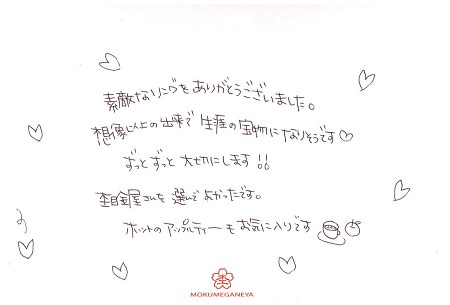 素敵なリングをありがとうございました。
想像以上の出来で生涯の宝物になりそうです♡
ずっとずっと大切にします!!
杢目金屋さんを選んでよかったです。
ホットのアップルティーもお気に入りです
MOKUMEGANEYA